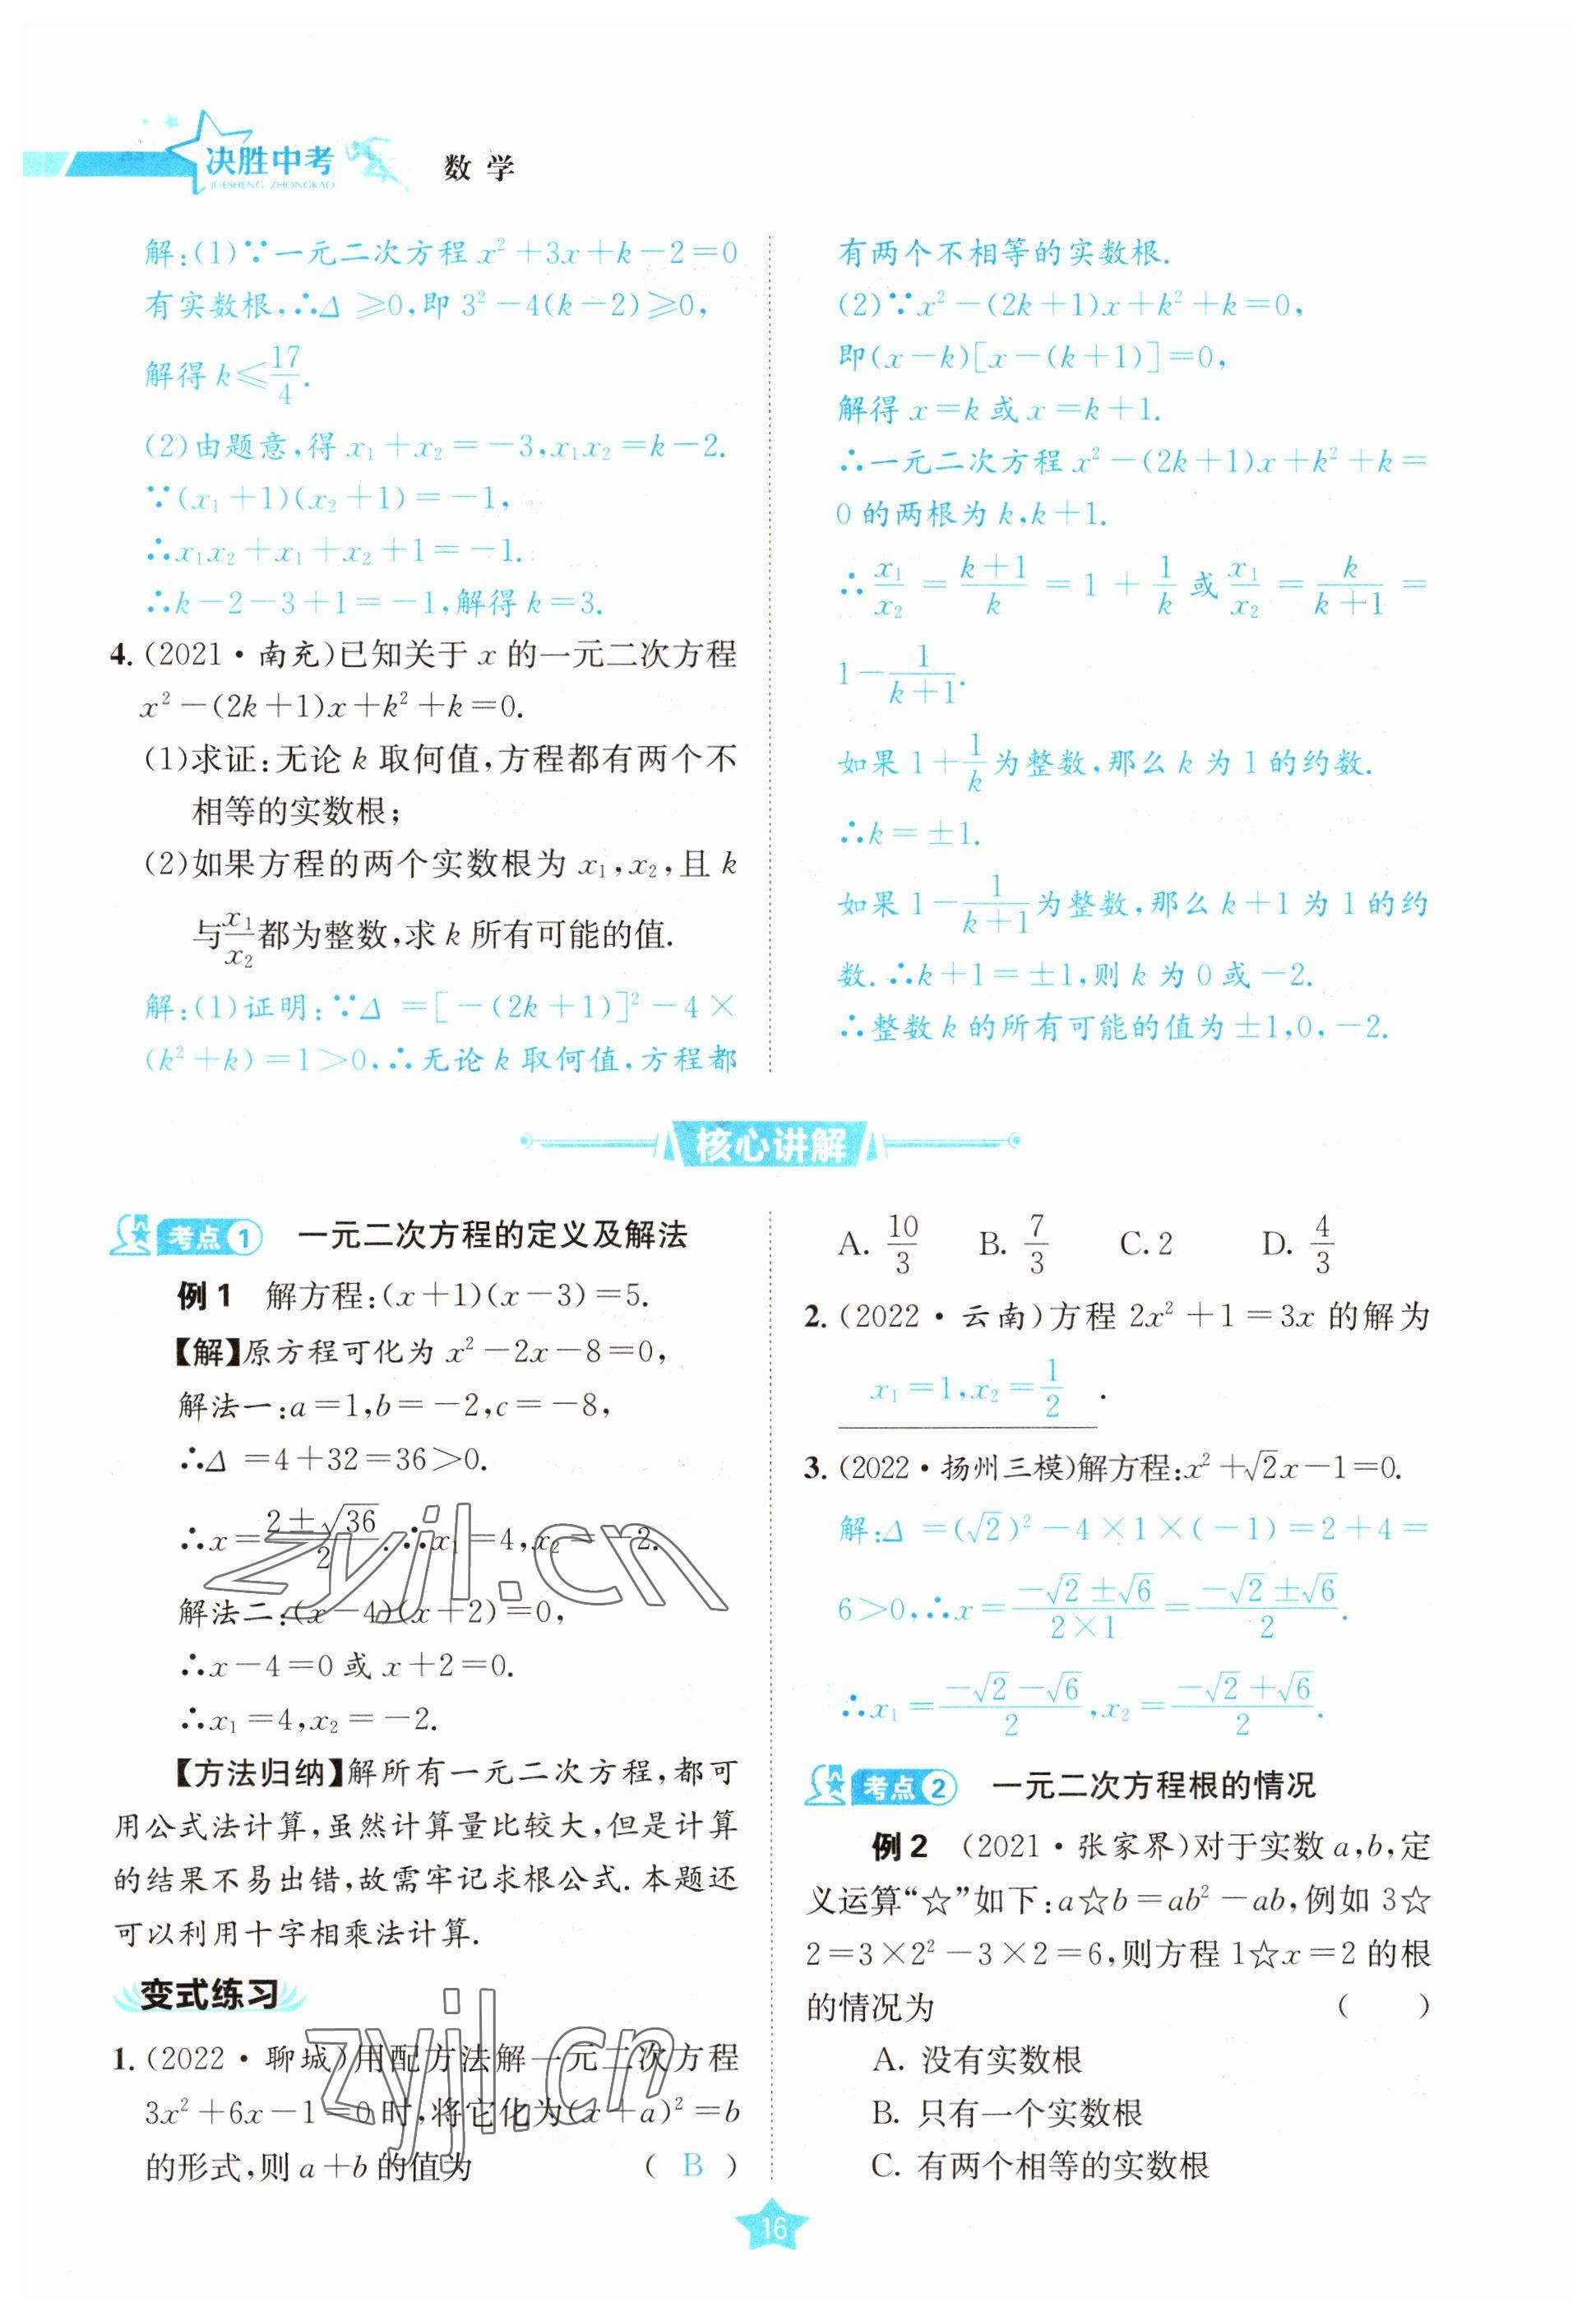 决胜中考
JUESHENG ZHONGKAO
数学
解:(1)∵一元二次方程 x²+3x+k-2=0
有实数根,∴Δ ≥0,即 3²-4(k-2)≥0,
解得 k≤17/4.
(2)由题意,得 x₁+x₂=-3,x₁x₂=k-2.
∵(x₁+1)(x₂+1)=-1,
∴x₁x₂+x₁+x₂+1=-1.
∴k-2-3+1=-1,解得 k=3.
4.(2021·南充)已知关于 x 的一元二次方程
x²-(2k+1)x+k²+k=0.
(1)求证:无论 k 取何值,方程都有两个不
相等的实数根;
(2)如果方程的两个实数根为 x₁,x₂,且 k
与x₁/x₂都为整数,求 k 所有可能的值.
解:(1)证明:∵Δ =[-(2k+1)]²-4×
(k²+k)=1>0,∴无论 k 取何值,方程都
有两个不相等的实数根.
(2)∵x²-(2k+1)x+k²+k=0,
即(x-k)[x-(k+1)]=0,
解得 x=k 或 x=k+1.
∴一元二次方程 x²-(2k+1)x+k²+k=
0 的两根为 k,k+1.
∴x₁/x₂=(k+1)/k=1+1/k 或 x₁/x₂=k/(k+1)=
1-1/(k+1).
如果 1+1/k为整数,那么 k 为 1 的约数.
∴k=±1.
如果 1-1/(k+1)为整数,那么 k+1 为 1 的约
数.∴k+1=±1,则 k 为 0 或-2.
∴整数 k 的所有可能的值为±1,0,-2.
核心讲解
考点1 一元二次方程的定义及解法
例1 解方程:(x+1)(x-3)=5.
【解】原方程可化为 x²-2x-8=0,
解法一:a=1,b=-2,c=-8,
∴Δ =4+32=36>0.
∴x=(2±√36)/2.∴x₁=4,x₂=-2.
解法二:(x-4)(x+2)=0,
∴x-4=0 或 x+2=0.
∴x₁=4,x₂=-2.
【方法归纳】解所有一元二次方程,都可
用公式法计算,虽然计算量比较大,但是计算
的结果不易出错,故需牢记求根公式.本题还
可以利用十字相乘法计算.
变式练习
1.(2022·聊城)用配方法解一元二次方程
3x²+6x-1=0时,将它化为(x+a)²=b
的形式,则 a+b 的值为 ( B )
A. 10/3 B. 7/3 C. 2 D. 4/3
2.(2022·云南)方程 2x²+1=3x 的解为
x₁=1,x₂=1/2 .
3.(2022·扬州三模)解方程:x²+√2x-1=0.
解:Δ =(√2)²-4×1×(-1)=2+4=
6>0,∴x=(-√2±√6)/(2×1)=(-√2±√6)/2.
∴x₁=(-√2-√6)/2,x₂=(-√2+√6)/2.
考点2 一元二次方程根的情况
例2 (2021·张家界)对于实数 a,b,定
义运算“☆”如下:a☆b=ab²-ab,例如 3☆
2=3×2²-3×2=6,则方程 1☆x=2 的根
的情况为 ( )
A. 没有实数根
B. 只有一个实数根
C. 有两个相等的实数根
16
zyjl.cn
zyjl.cn